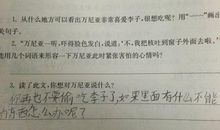 1. 从什么地方可以看出万尼亚非常喜爱李子,很想吃呢?用"——"画出
美句子.
2. "万尼亚一听,吓得脸色发白,说道,'不,我把核吐到窗子外面去啦.'
能用几个词语来形容一下万尼亚此时紧张害怕的心情吗?
3. 读了此文,你想对万尼亚说什么?
你再也不要偷吃李子了,如果里面有什么不能
吃的东西怎么办呢?